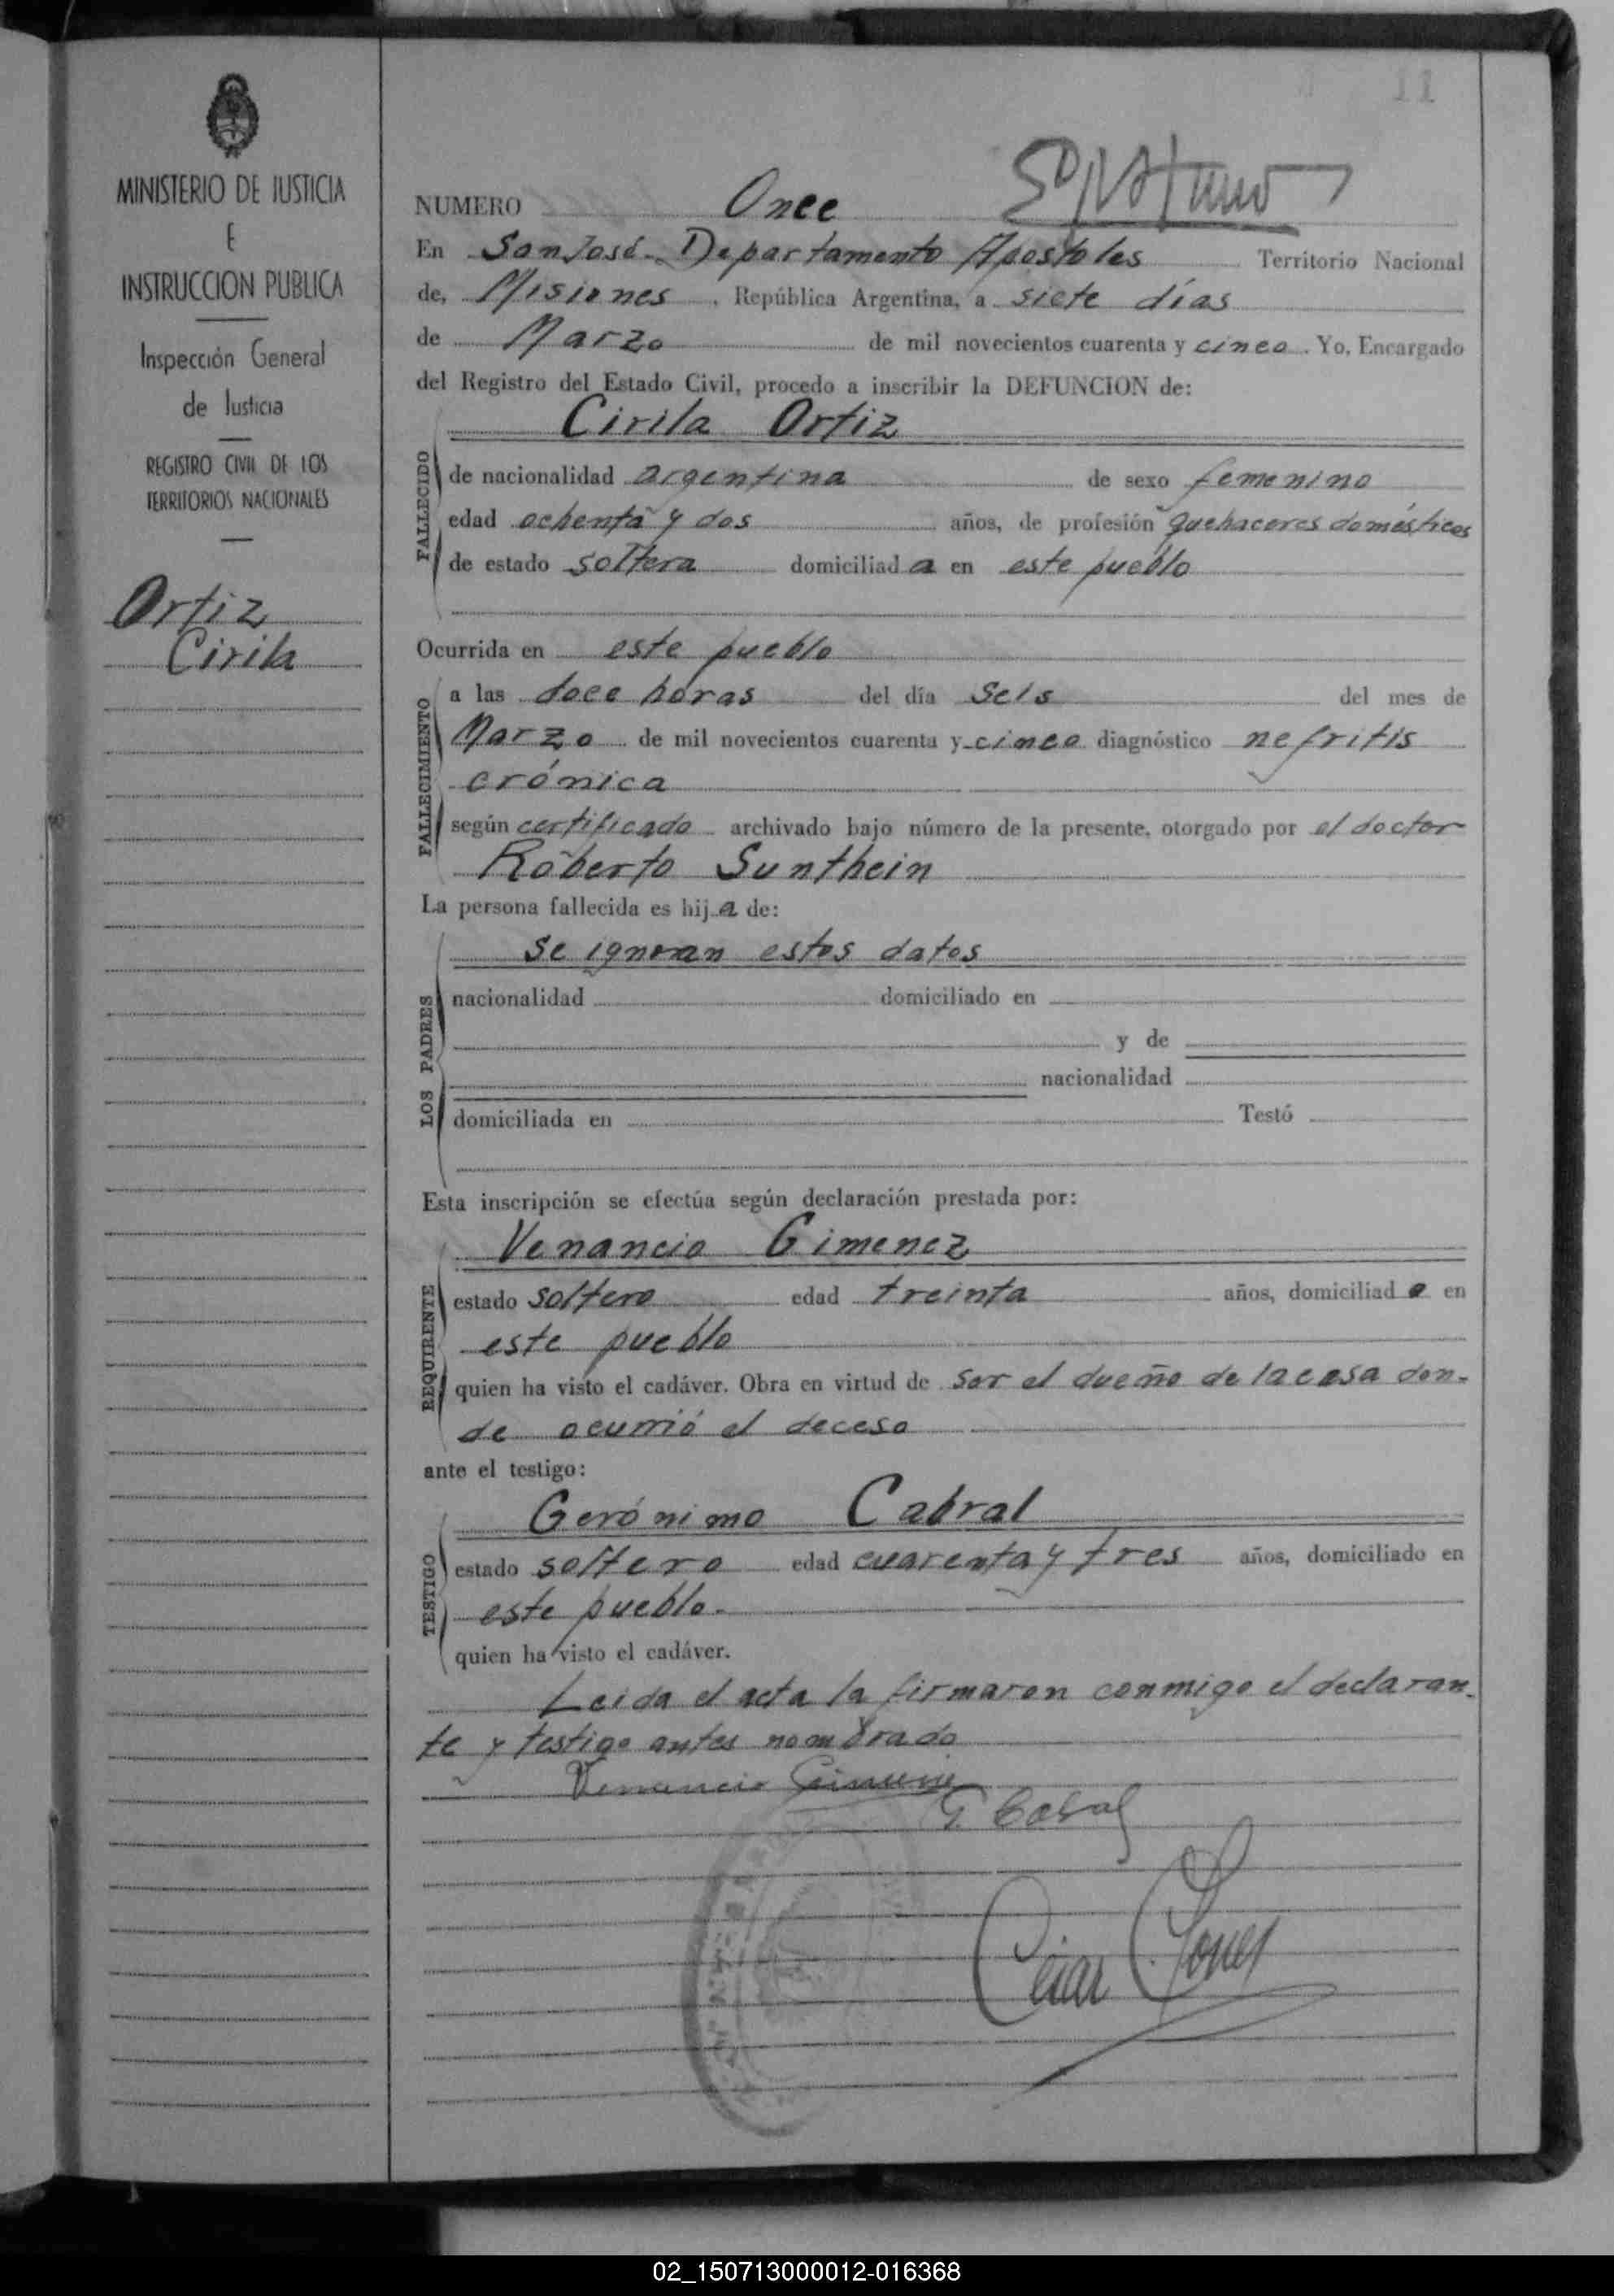 11
MINISTERIO DE JUSTICIA
E
INSTRUCCION PUBLICA
Inspección General
de Justicia
REGISTRO CIVIL DE LOS
TERRITORIOS NACIONALES
Ortiz
Cirila
NUMERO Once
En San José - Departamento Apostoles Territorio Nacional
de, Misiones, República Argentina, a siete días
de Marzo de mil novecientos cuarenta y cinco. Yo, Encargado
del Registro del Estado Civil, procedo a inscribir la DEFUNCION de:
Cirila Ortiz
FALLECIDO
de nacionalidad argentina de sexo femenino
edad ochenta y dos años, de profesión quehaceres domésticos
de estado soltera domiciliada en este pueblo
Ocurrida en este pueblo
FALLECIMIENTO
a las doce horas del día seis del mes de
Marzo de mil novecientos cuarenta y cinco diagnóstico nefritis
crónica
según certificado archivado bajo número de la presente, otorgado por el doctor
Roberto Sunthein
La persona fallecida es hija de:
LOS PADRES
se ignoran estos datos
nacionalidad domiciliado en
y de
nacionalidad
domiciliada en Testó
Esta inscripción se efectúa según declaración prestada por:
REQUIRENTE
Venancio Gimenez
estado soltero edad treinta años, domiciliado en
este pueblo
quien ha visto el cadáver. Obra en virtud de ser el dueño de la casa don-
de ocurrió el deceso
ante el testigo:
TESTIGO
Gerónimo Cabral
estado soltero edad cuarenta y tres años, domiciliado en
este pueblo.
quien ha visto el cadáver.
Leida el acta la firmaron conmigo el declaran-
te y testigo antes nombrado
Venancio Gimenez
G. Cabral
02_150713000012-016368